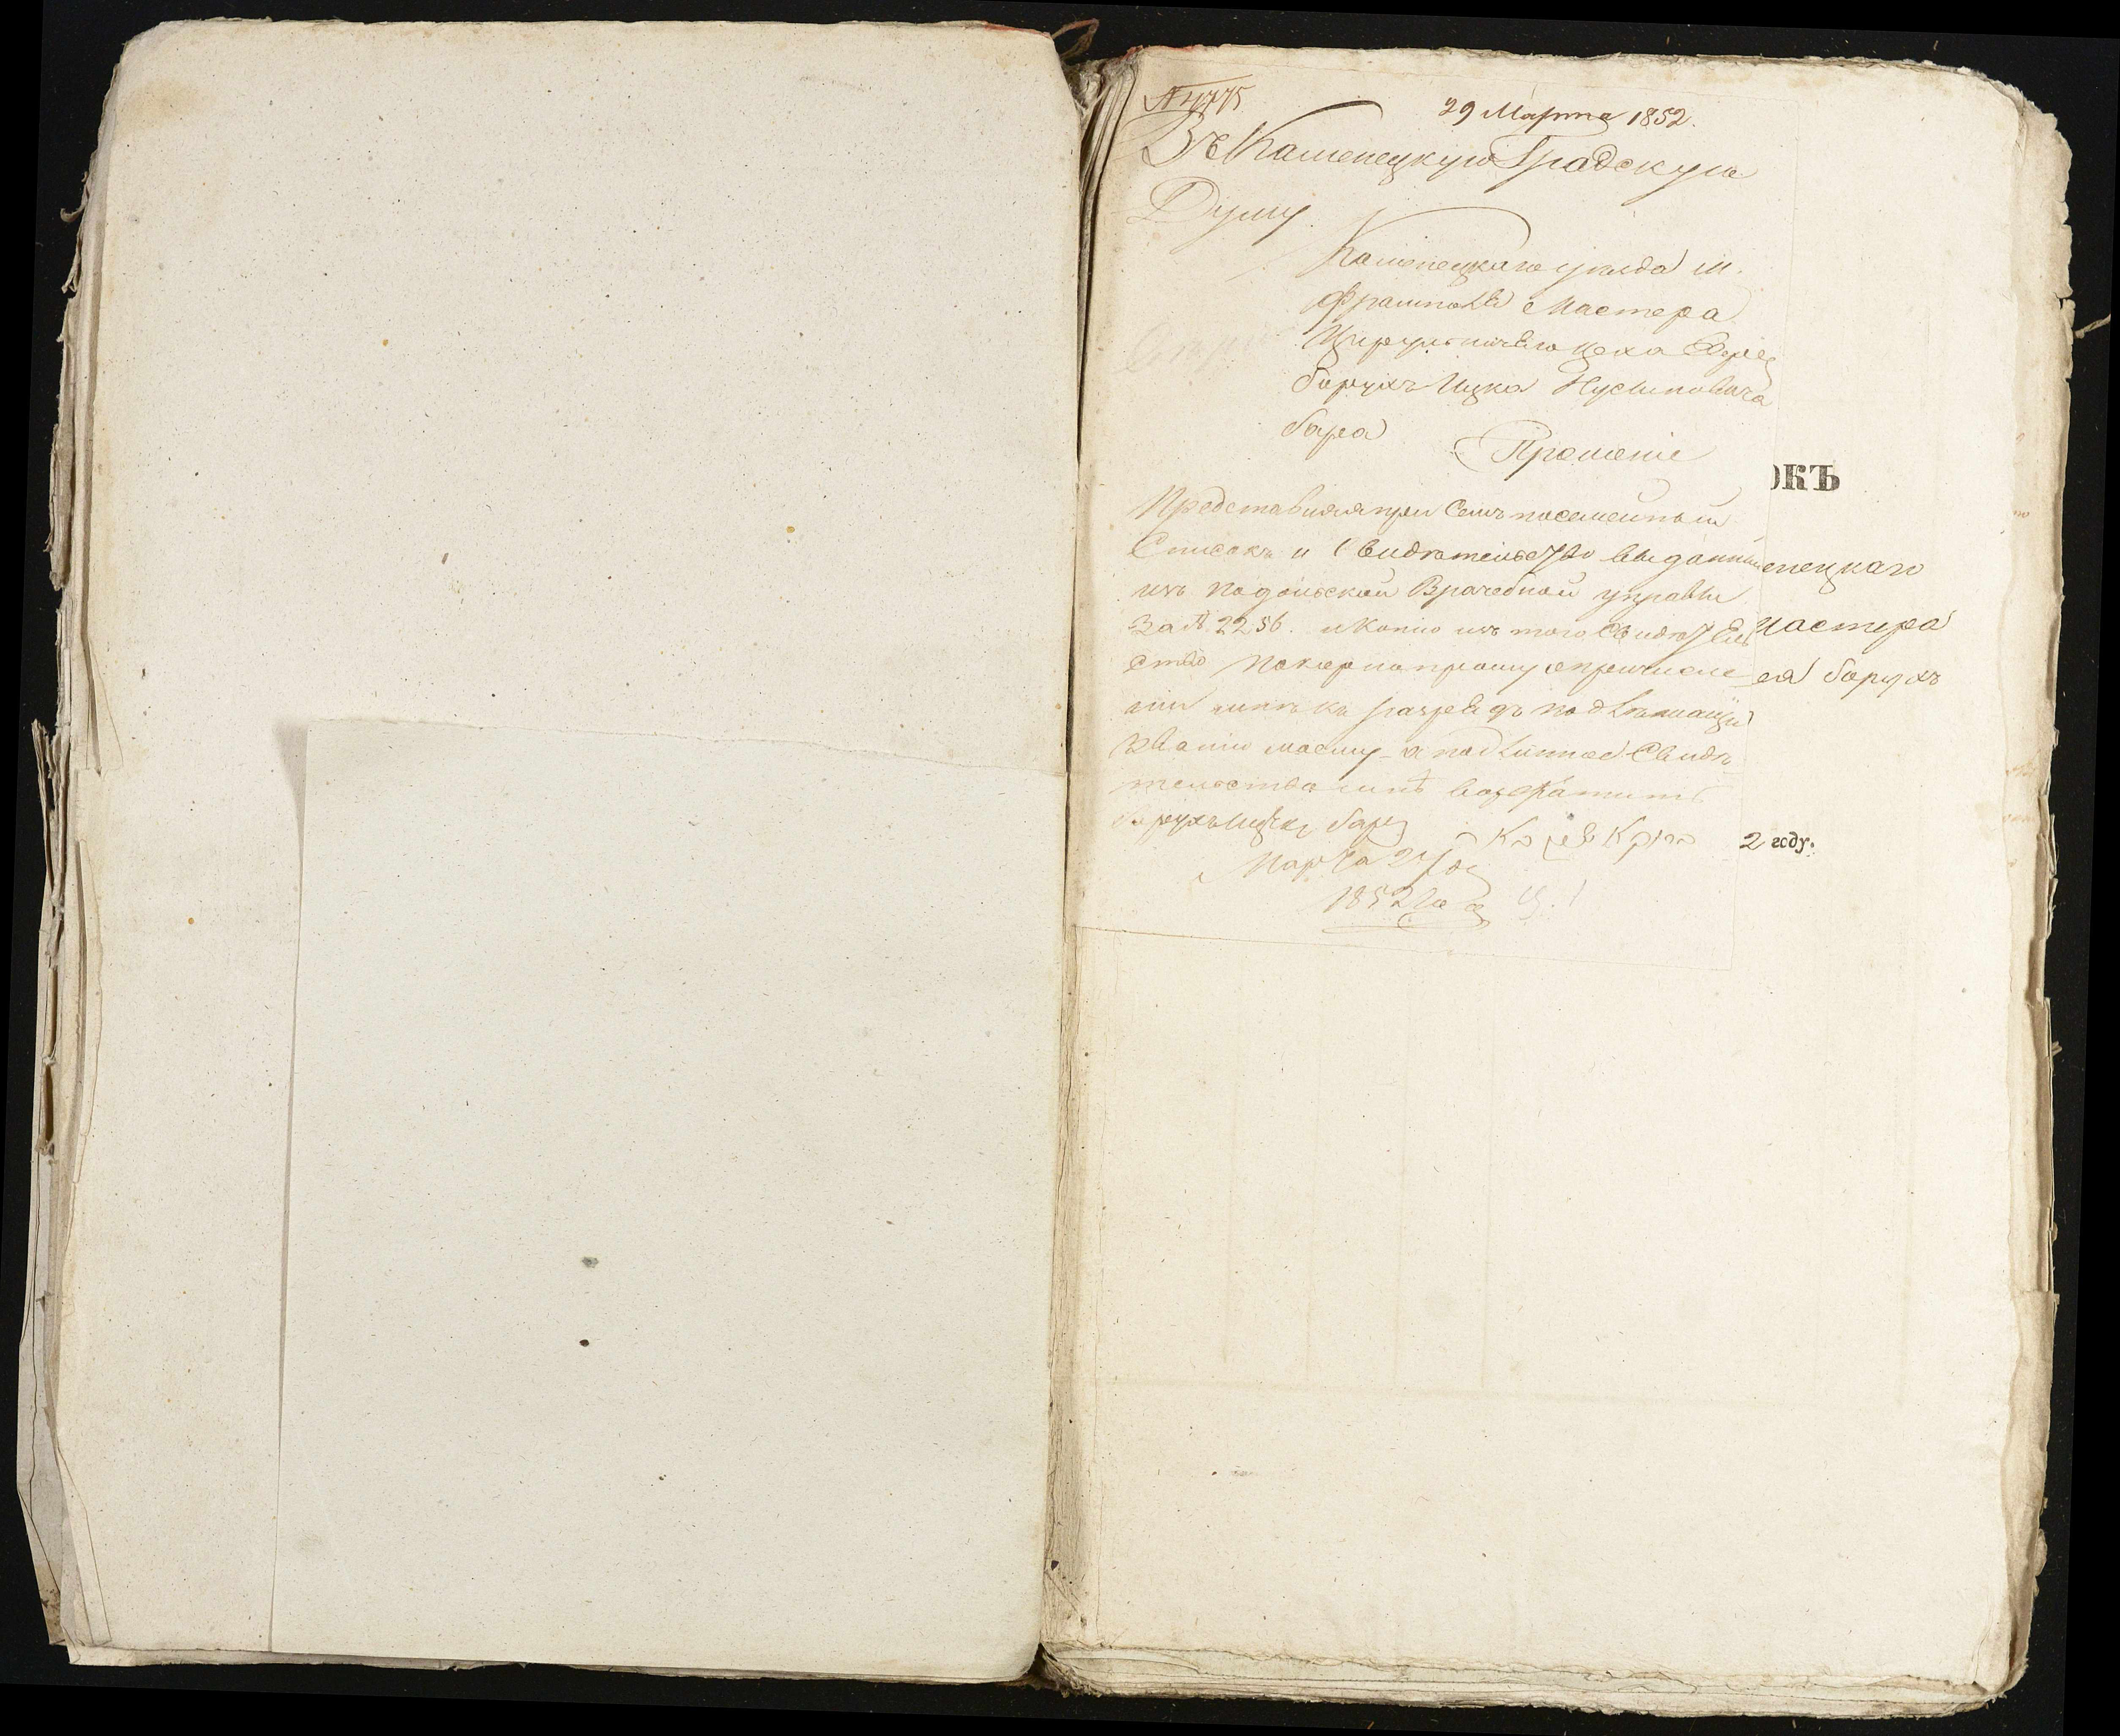 № 4775
29 Марта 1852.
Въ Каменецкую Градскую
Думу.
Каменецкаго уѣзда м.
Фрамполя Мастера
Цирульничаго цеха Еврея
Борухъ Ицка Нусиновича
бара
Прошеніе
Представляя при Семъ посемейный
Списокъ и Свидѣтельство выданный
изъ подольской Врачебной управы
За №. 2256. и копію изъ того Свидѣтель
ство покорно прошу о причисле
ніи менѣ къ разредъ подлѣжащій
званію моему а подлинное Свидѣ
тельство мнѣ возвратить
Борухъ Ицко баръ
Марта 27 
1852 года
ОКЪ
енецкаго
Мастера
ея борухъ
2 году.